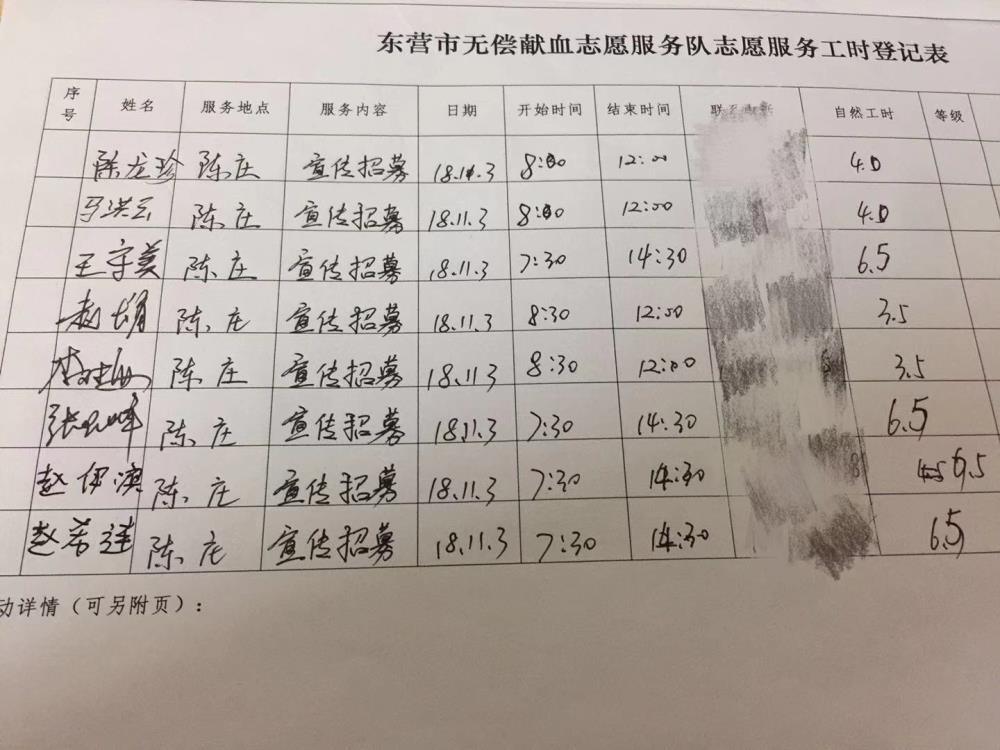 东营市无偿献血志愿服务队志愿服务工时登记表
序号 姓名 服务地点 服务内容 日期 开始时间 结束时间 联系 自然工时 等级
陈龙珍 陈庄 宣传招募 18.11.3 8:00 12:00 4.0
马洪云 陈庄 宣传招募 18.11.3 8:00 12:00 4.0
王守美 陈庄 宣传招募 18.11.3 7:30 14:30 6.5
赵 陈庄 宣传招募 18.11.3 8:30 12:00 3.5
陈庄 宣传招募 18.11.3 8:30 12:00 3.5
张 峰 陈庄 宣传招募 18.11.3 7:30 14:30 6.5
赵伊漠 陈庄 宣传招募 18.11.3 7:30 14:30 6.5
赵希 陈庄 宣传招募 18.11.3 7:30 14:30 6.5
动详情（可另附页）：